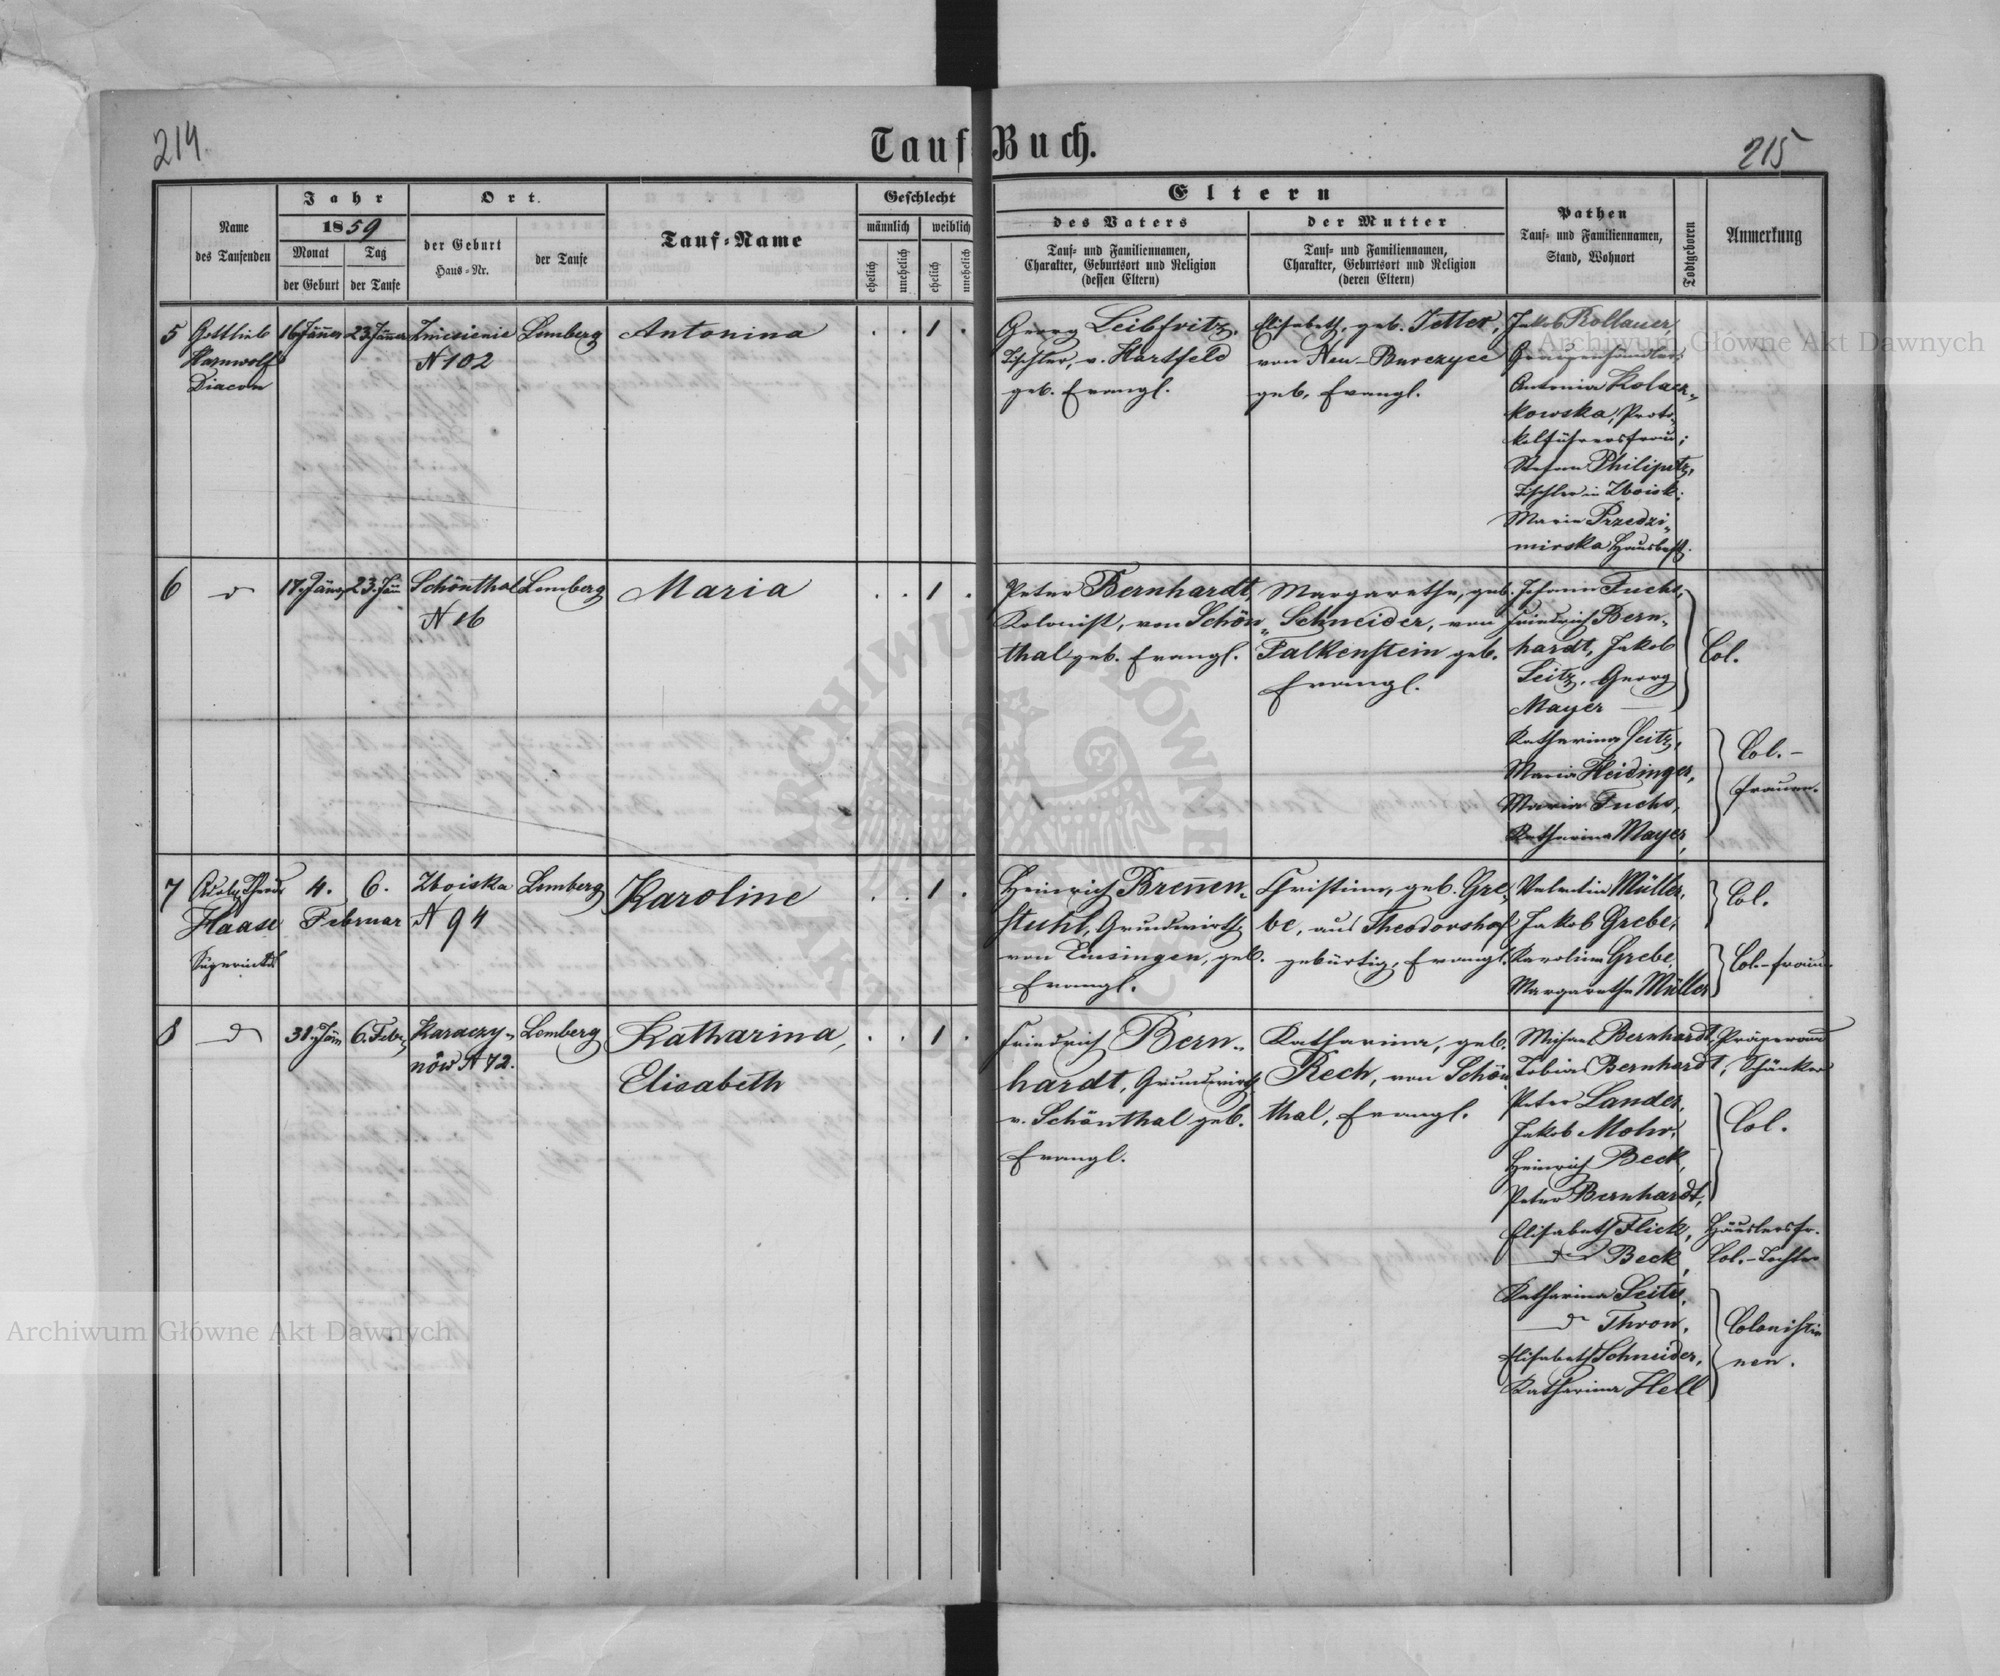 214.
Tauf-Buch.
215
Name
des Taufenden
Jahr
1859
Monat
Tag
der Geburt
der Taufe
Ort.
der Geburt
Haus-Nr.
der Taufe
Tauf-Name
Geschlecht
männlich
weiblich
ehelich
unehelich
ehelich
unehelich
Eltern
des Vaters
Tauf- und Familiennamen,
Charakter, Geburtsort und Religion
(dessen Eltern)
der Mutter
Tauf- und Familiennamen,
Charakter, Geburtsort und Religion
(deren Eltern)
Pathen
Tauf- und Familiennamen,
Stand, Wohnort
Todtgeboren
Anmerkung
5
Gottlieb
Diacon
16 Jänner
23 Jänner
Zniesienie
N 102
Lemberg
Antonina
1
Georg Leibfritz,
Tischler, v. Hartfeld
geb. Evangl.
Elisabeth, geb. Jetter,
von Neu-Burczyce
geb. Evangl.
Jakob Rollauer,
Antonia Kolacz-
kowska, Proto-
kollführersfrau;
Stefan Philipetz,
Tischler in Zboisk.
Maria Przedzi-
mirska Hausbes.
6
17. Jänn
23. Jänn
Schönthal
N 16
Lemberg
Maria
1
Peter Bernhardt
Kolonist, von Schön-
thal geb. Evangl.
Margarethe, geb.
Schneider, von
Falkenstein geb.
Evangl.
Johann Fuchs,
Friedrich Bern-
hardt, Jakob
Seitz, Georg
Mayer
Col.
Katharina Seitz,
Maria Heidinger,
Maria Fuchs,
Katharina Mayer,
Col.-
frauen.
7
Haase
4.
6.
Februar
Zboiska
N 94
Lemberg
Karoline
1
Heinrich Brennen-
stuhl, Grundwirth
von Einsingen, geb.
Evangl.
Christina, geb. Gre-
be, aus Theodorshof
gebürtig, Evangl.
Valentin Müller,
Jakob Grebe,
Col.
Karolina Grebe,
Margaretha Müller
Col.-frauen
8
31. Jän
6. Febr
Karaczy-
nów N 72.
Lemberg
Katharina,
Elisabeth
1
Friedrich Bern-
hardt, Grundwirth
v. Schönthal geb.
Evangl.
Katharina, geb.
Rech, von Schön
thal, Evangl.
Michael Bernhardt, Präperand
Tobias Bernhardt, Schänker
Peter Lander,
Jakob Mohr,
Heinrich Beck,
Peter Bernhardt,
Col.
Elisabeth Flick, Häuslersfr.
Beck, Col.-Tochter
Katharina Seitz,
Thron,
Elisabeth Schneider,
Katharina Hell
Colonistin
nen.
Archiwum Główne Akt Dawnych
Archiwum Główne Akt Dawnych
ARCHIWUM GŁÓWNE AKT DAWNYCH